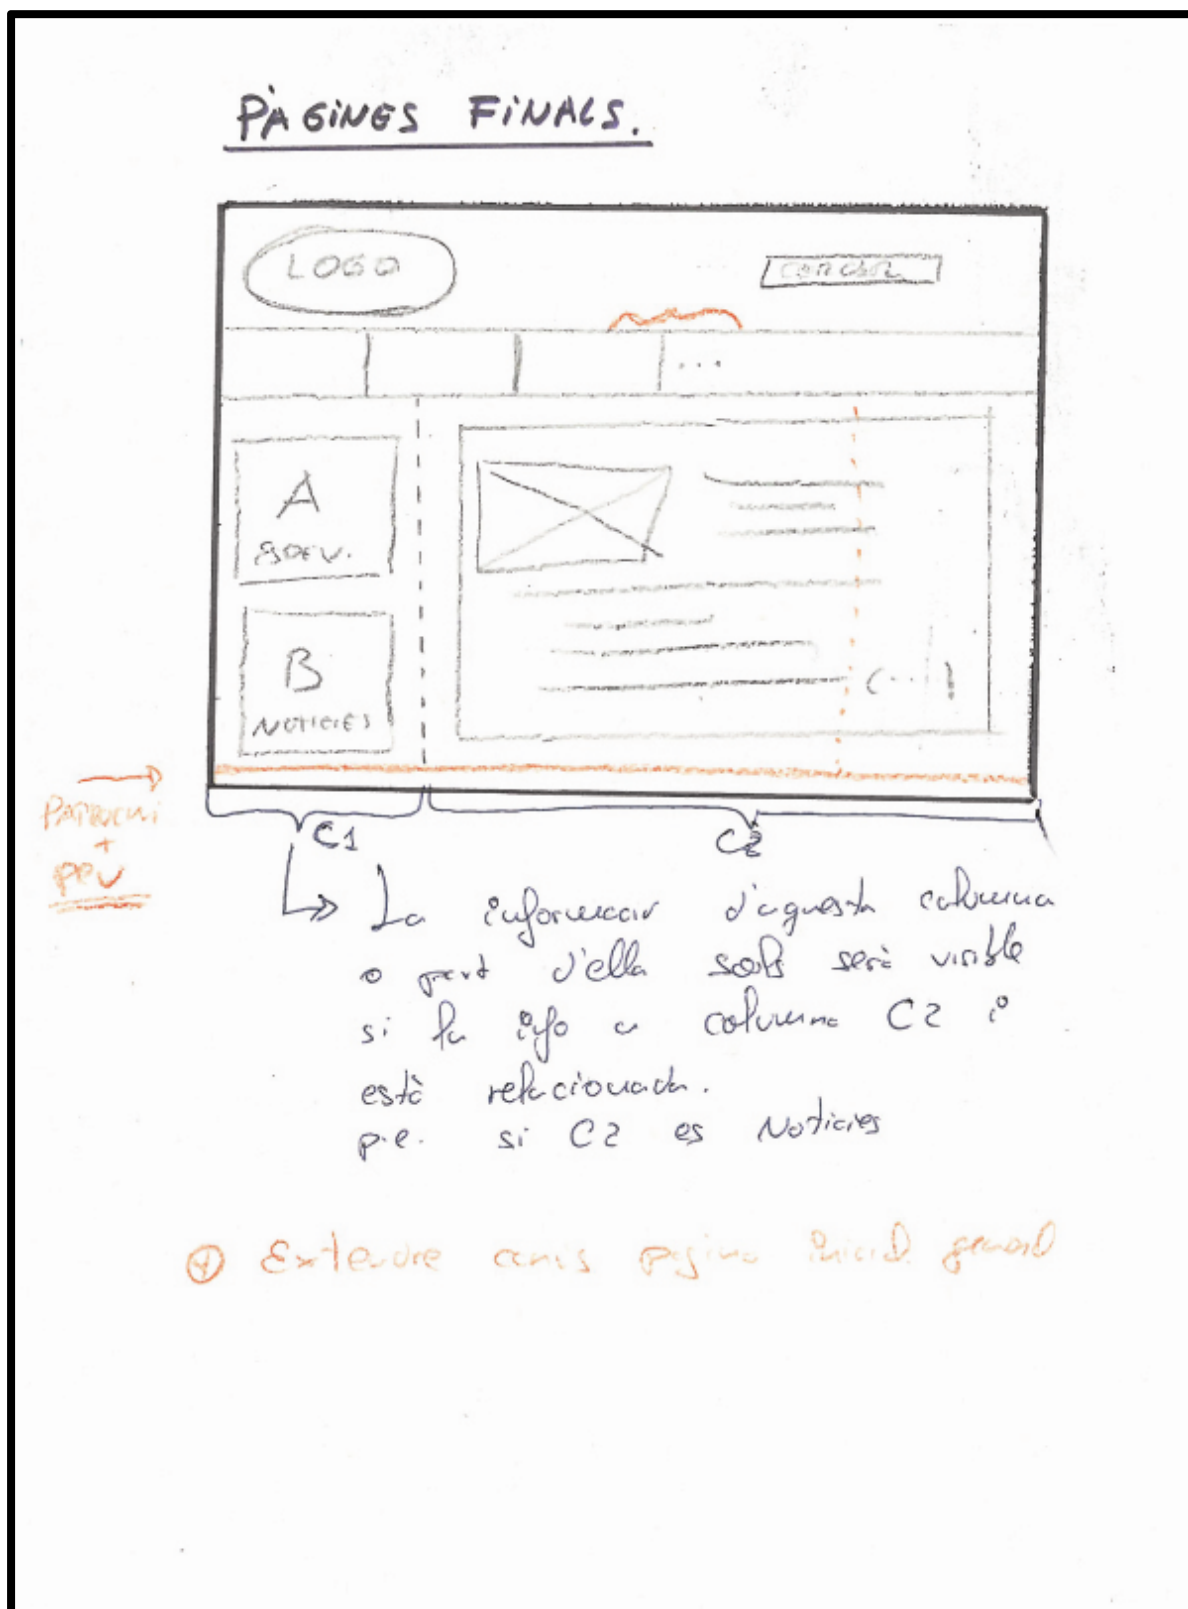 PÀGINES FINALS.
LOGO
...
A
ESDEV.
B
NOTICIES
(...)
PATROCINI
+
PEU
C1
C2
La informacio d'aquesta columna
o part d'ella sols serà visible
si la info a columna C2 i
està relacionada.
p.e. si C2 es Noticies
Extendre canvis pagina inicial general